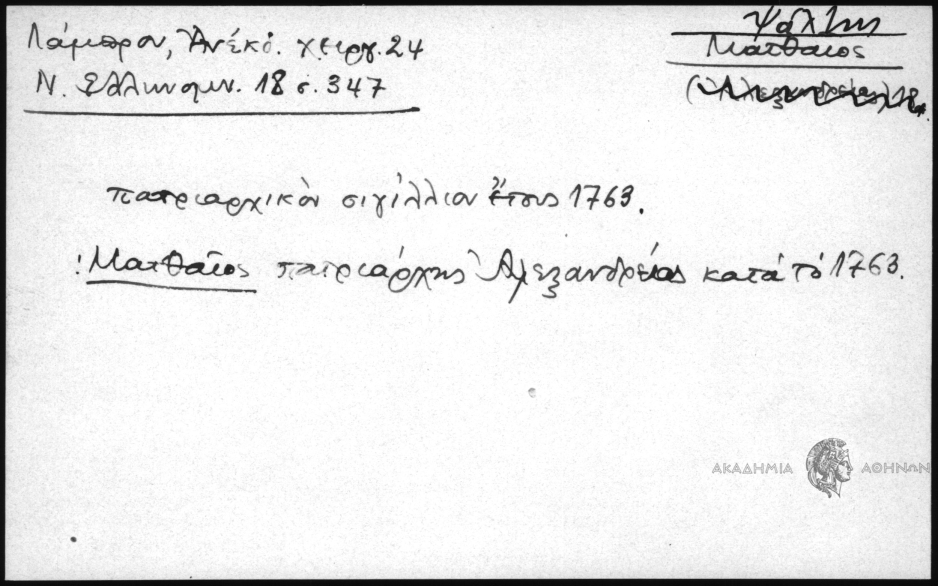 Λάμπρου, Ἀνέκδ. χειργ. 24
Ν. Ἑλληνομν. 18 σ. 347
Ψάλτης
Ματθαῖος
(Ἀλεξανδρείας) 18
πατριαρχικὸν σιγίλλιον ἔτους 1763.
: Ματθαῖος πατριάρχης Ἀλεξανδρείας κατὰ τὸ 1763.
ΑΚΑΔΗΜΙΑ ΑΘΗΝΩΝ